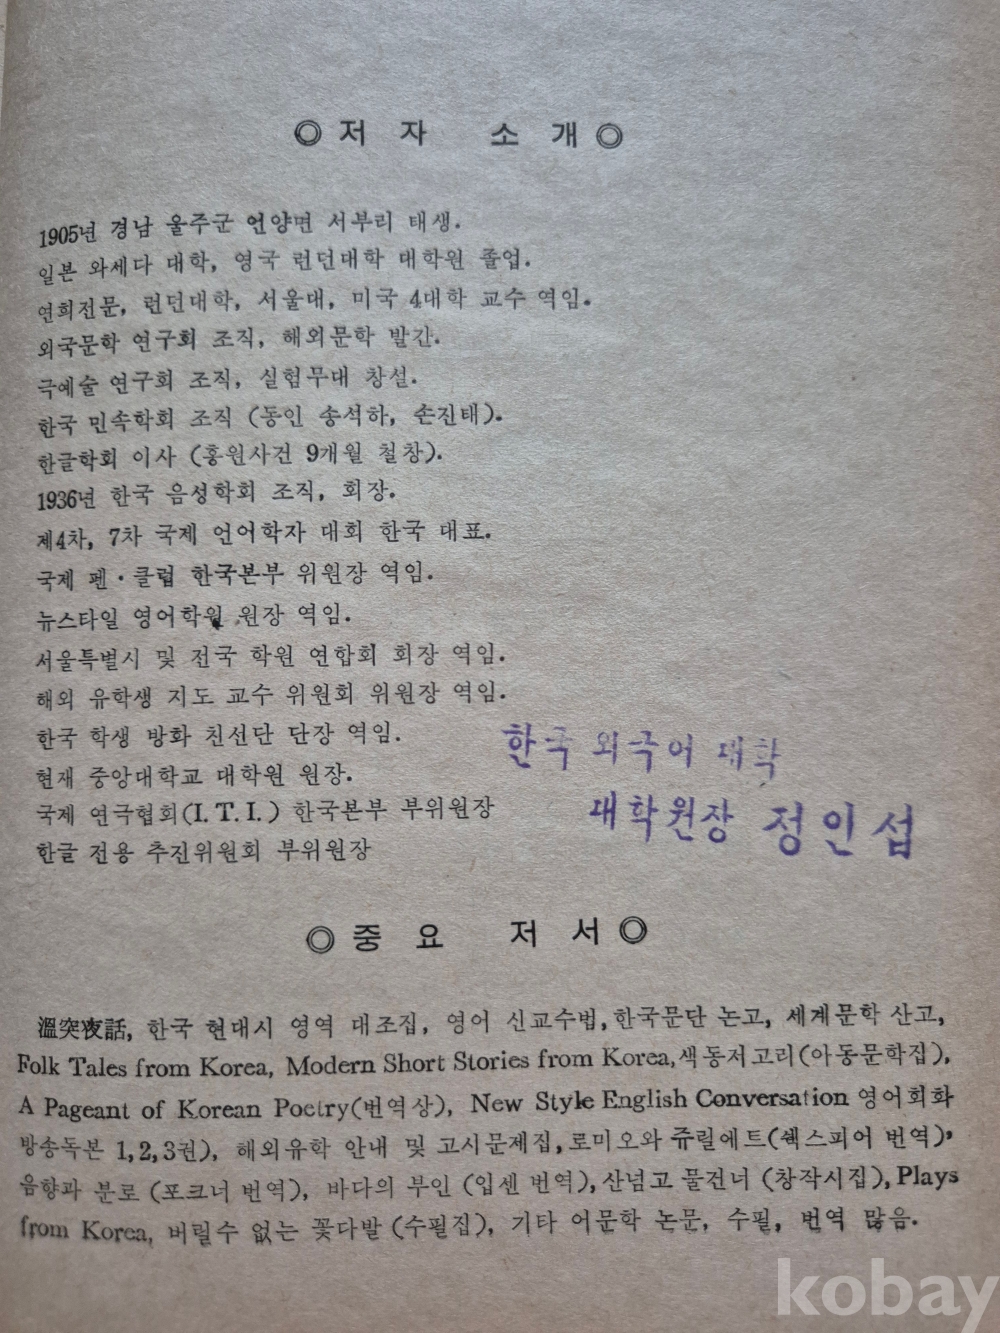 ◎ 저 자 소 개 ◎
1905년 경남 울주군 언양면 서부리 태생.
일본 와세다 대학, 영국 런던대학 대학원 졸업.
연희전문, 런던대학, 서울대, 미국 4대학 교수 역임.
외국문학 연구회 조직, 해외문학 발간.
극예술 연구회 조직, 실험무대 창설.
한국 민속학회 조직 (동인 송석하, 손진태).
한글학회 이사 (홍원사건 9개월 철창).
1936년 한국 음성학회 조직, 회장.
제4차, 7차 국제 언어학자 대회 한국 대표.
국제 펜·클럽 한국본부 위원장 역임.
뉴스타일 영어학원 원장 역임.
서울특별시 및 전국 학원 연합회 회장 역임.
해외 유학생 지도 교수 위원회 위원장 역임.
한국 학생 방화 친선단 단장 역임.
한국 외국어 대학
현재 중앙대학교 대학원 원장.
국제 연극협회(I.T.I.) 한국본부 부위원장
대학원장 정인섭
한글 전용 추진위원회 부위원장
◎ 중 요 저 서 ◎
溫突夜話, 한국 현대시 영역 대조집, 영어 신교수법, 한국문단 논고, 세계문학 산고,
Folk Tales from Korea, Modern Short Stories from Korea, 색동저고리(아동문학집),
A Pageant of Korean Poetry(번역상), New Style English Conversation 영어회화
방송독본 1,2,3권), 해외유학 안내 및 고시문제집, 로미오와 쥬릴에트(쉑스피어 번역),
음향과 분로 (포크너 번역), 바다의 부인 (입센 번역), 산넘고 물건너 (창작시집), Plays
from Korea, 버릴수 없는 꽃다발 (수필집), 기타 어문학 논문, 수필, 번역 많음.
kobay